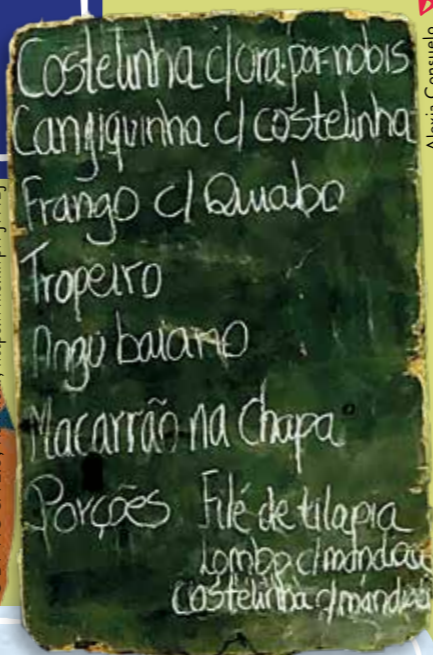 Costelinha c/ ora-por-nobis
Canjiquinha c/ costelinha
Frango c/ Quiabo
Tropeiro
Angu baiano
Macarrão na Chapa
Porções Filé de tilapia
Lombo c/ mandioca
Costelinha c/ mandioca
Alexia Consuelo